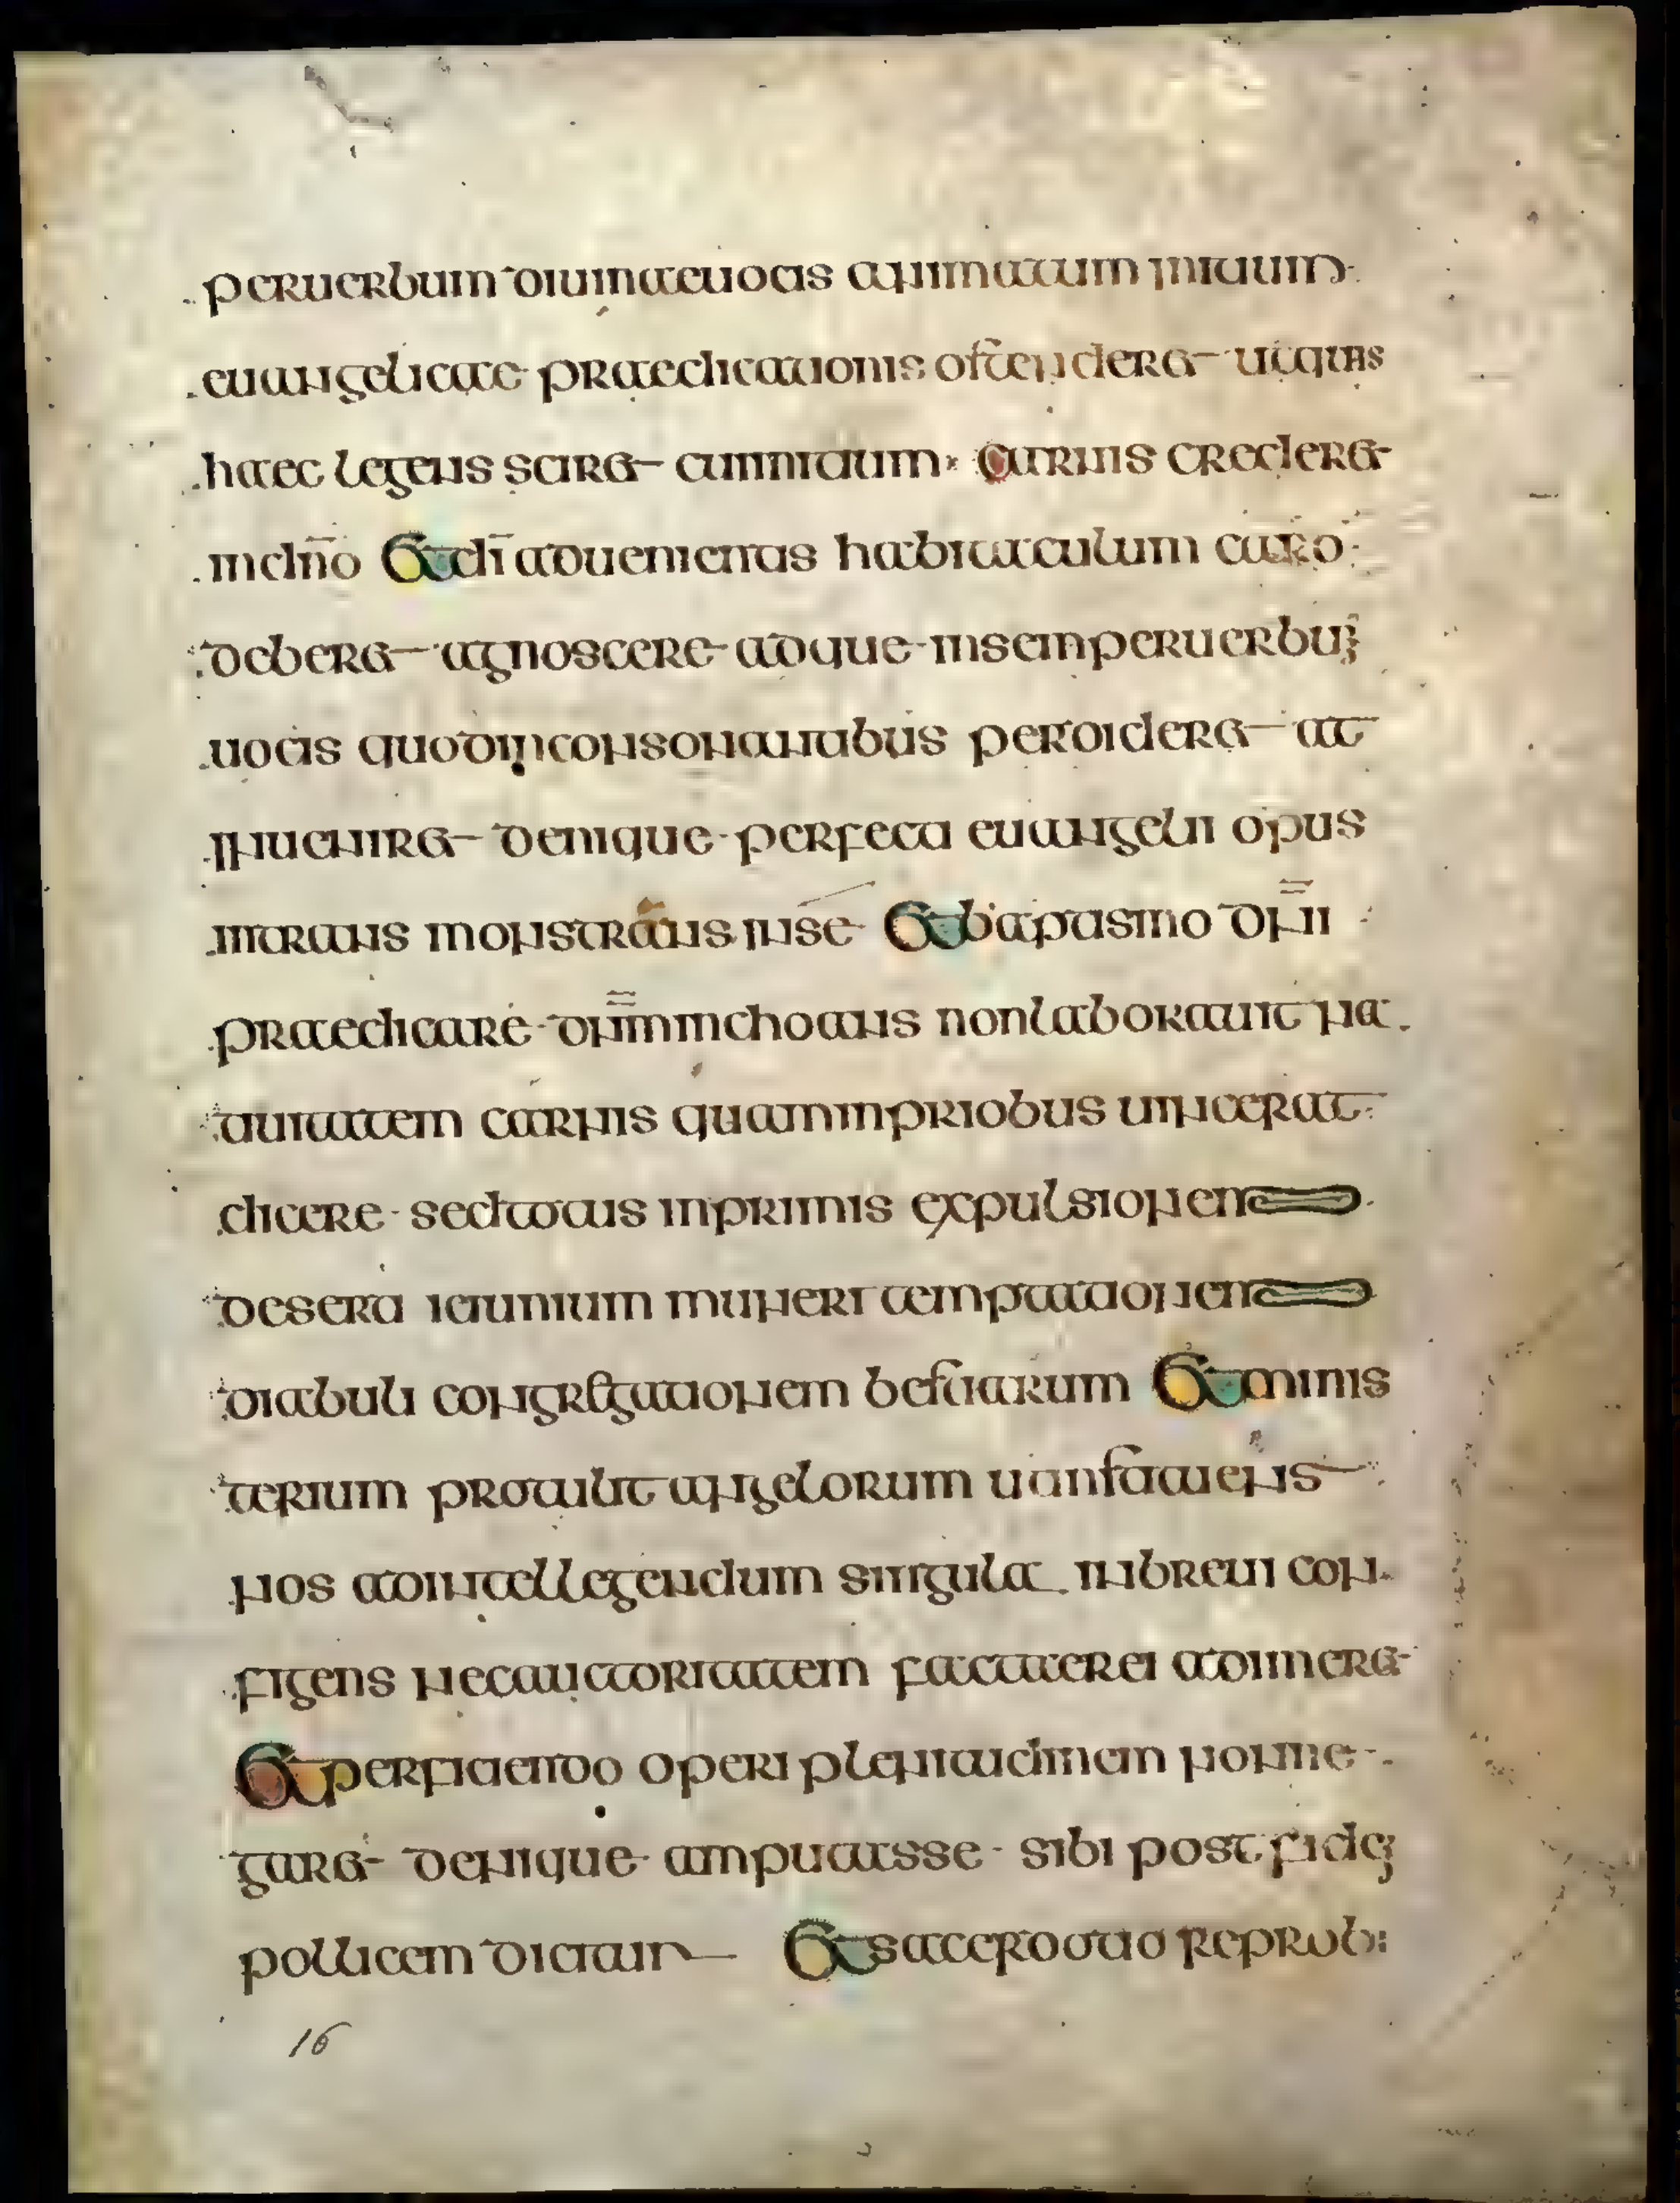 peruerbum diuinaeuocis animatum initium
euangelicae praedicationis ostenderet utquis
haec legens sciret cuiinitium carnis crederet
indno et di aduenientis habitaculum caro
deberet agnoscere adque insemperuerbu
uocis quodinconsonantibus perdideret at
inueniret denique perfecti euangelii opus
intrans monstrans inse et babtismo dni
praedicare dnminchoans nonlaborauit na
tiuitatem carnis quaminpriobus uincerat
dicere sedtotus inprimis expulsionem
deserti ieiunium numeri temptationem
diabuli congregationem bestiarum et minis
terium protulit angelorum utinstituens
nos adintellegendum singula inbreui con
figens necauctoritatem factaerei adimeret
et perficiendo operi plenitudinem nonne
garet denique amputasse sibi post fide
pollicem dicitur et sacerdotio reprob:
16